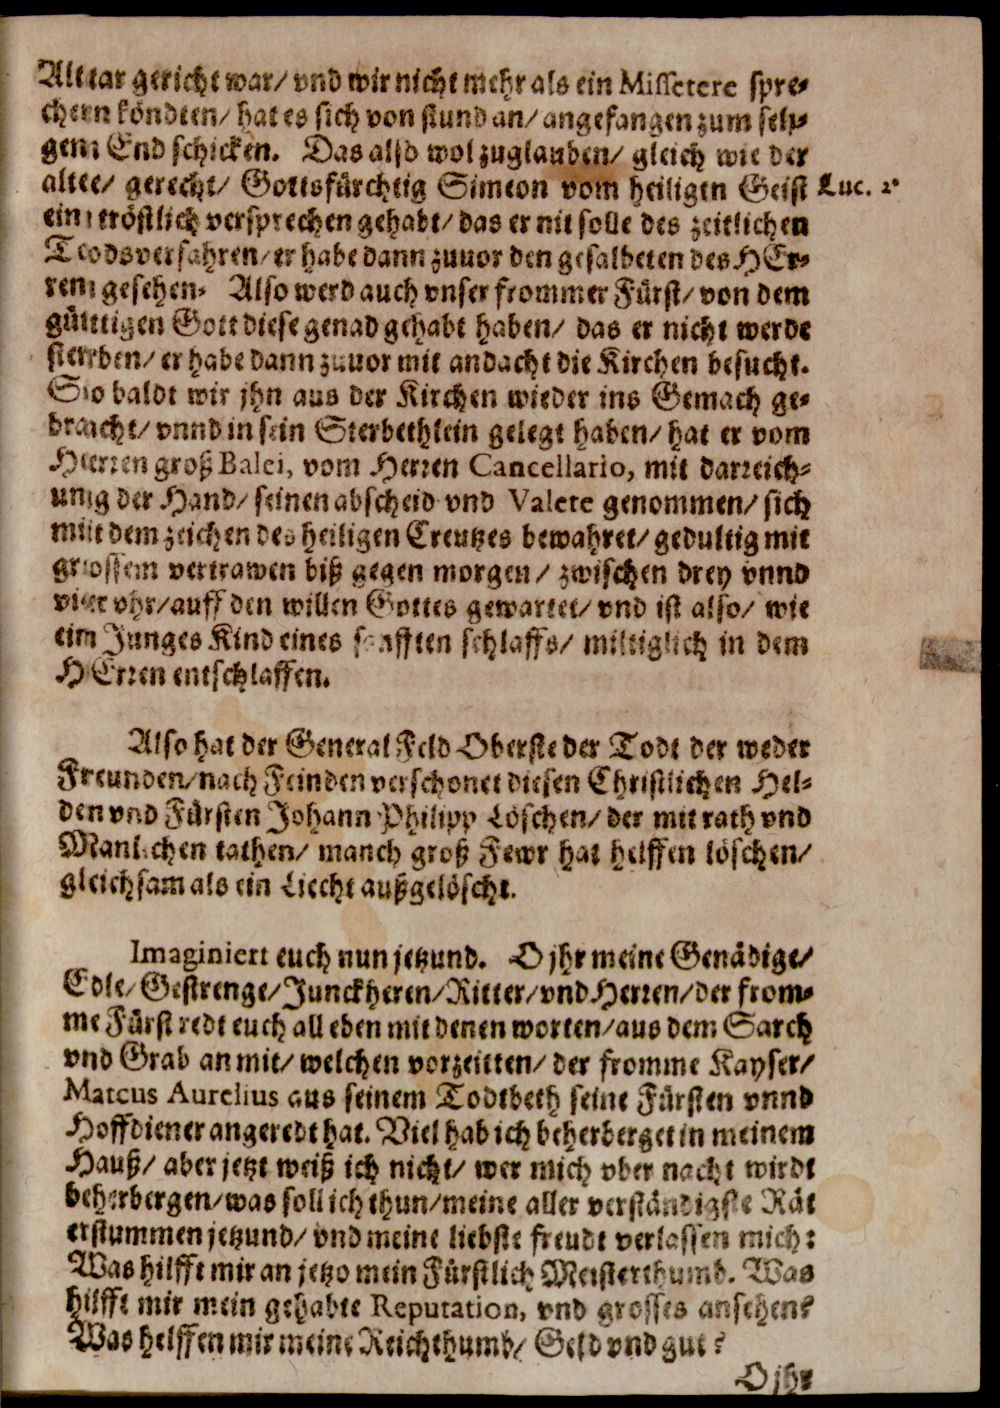 Alttar gericht war/ vnd wir nicht mehr als ein Missetere spre-
chern köndten/ hat es sich von stund an/ angefangen zum sely-
gem End schicken. Das also wol zuglauben/ gleich wie der
altee/ gerecht/ Gottsfürchtig Simeon vom heiligen Geist Luc. 2.
ein tröstlich versprechen gehabt/ das er nit solle des zeitlichen
Tods versahren/ er habe dann zuuor den gesalbeten des HEr-
ren gesehen. Also werd auch vnser frommer Fürst/ von dem
güttigen Gott diese genad gehabt haben/ das er nicht werde
sterben/ er habe dann zuuor mit andacht die Kirchen besucht.
So baldt wir jhn aus der Kirchen wieder ins Gemach ge-
bracht/ vnnd in sein Sterbethlein gelegt haben/ hat er vom
Herren groß Balei, vom Herren Cancellario, mit darreich-
ung der Hand/ seinen abscheid vnd Valete genommen/ sich
mit dem zeichen des heiligen Creutzes bewahret/ gedultig mit
grossem vertrawen biß gegen morgen/ zwischen drey vnnd
vier vhr/ auff den willen Gottes gewartet/ vnd ist also/ wie
ein Junges Kind eines sanfften schlaffs/ miltiglich in dem
HErren entschlaffen.

Also hat der General Feld Oberste der Todt der weder
Freunden/ nach Feinden verschonet diesen Christlichen Hel-
den vnd Fürsten Johann Philipp Löschen/ der mit rath vnd
Manlichen tathen/ manch groß Fewr hat helffen löschen/
gleichsam als ein Liecht außgelöscht.

Imaginiert euch nun jetzund. O jhr meine Genädige/
Edle/ Gestrenge/ Junckheren/ Ritter/ vnd Herren/ der from-
me Fürst redt euch all eben mit denen worten/ aus dem Sarch
vnd Grab an mit/ welchen vorzeitten/ der fromme Kayser/
Marcus Aurelius aus seinem Todtbeth seine Fürsten vnnd
Hoffdiener angeredt hat. Viel hab ich beherberget in meinem
Hauß/ aber jetzt weiß ich nicht/ wer mich vber nacht wirdt
beherbergen/ was soll ich thun/ meine aller verständigste Rät
erstummen jetzund/ vnd meine liebste freudt verlassen mich:
Was hilfft mir an jetzo mein Fürstlich Meisterthumb. Was
hilfft mir mein gehabte Reputation, vnd grosses ansehen?
Was helffen mir meine Reichthumb/ Geld vnd gut?
O jhr